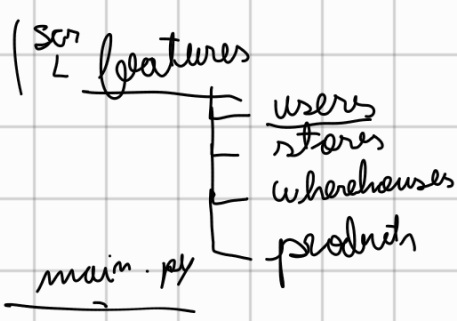 scr
features
users
stores
wherehouses
products
main.py